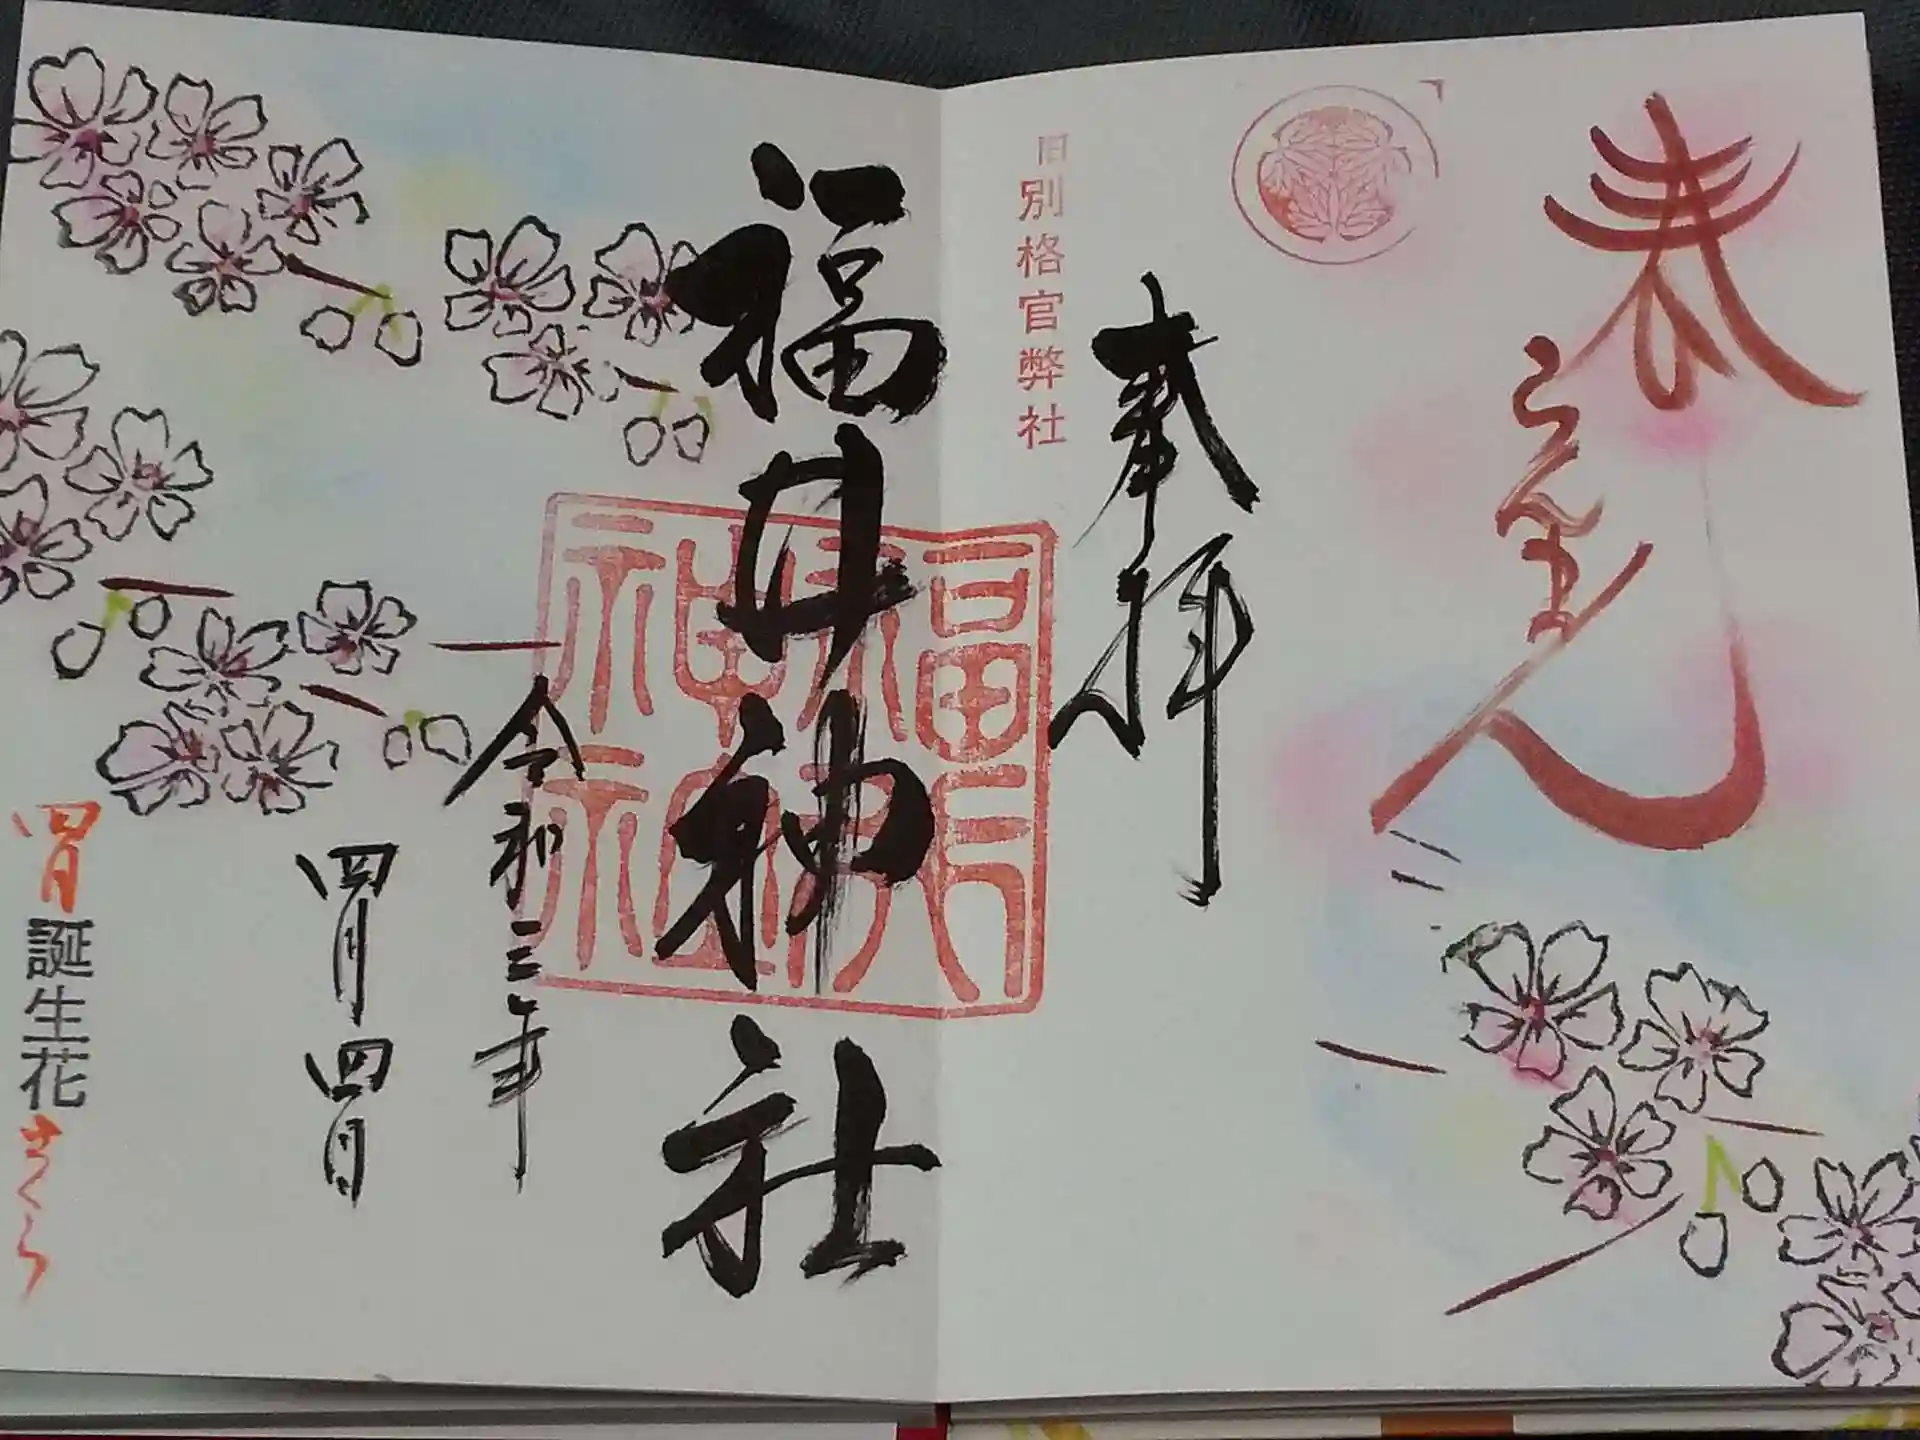 春
らんまん
奉拝
旧別格官弊社
福井神社
福井神社
令和三年
四月四日
四月誕生花さくら